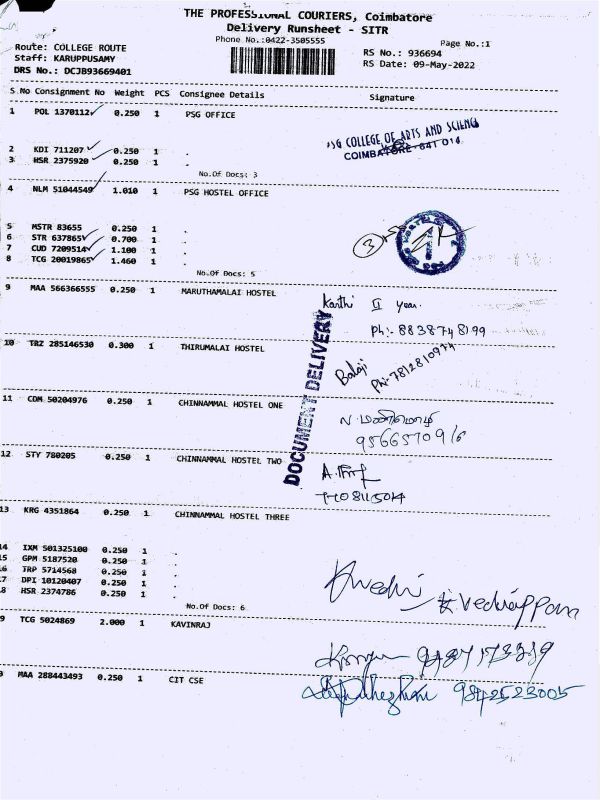 THE PROFESSIONAL COURIERS, Coimbatore
Delivery Runsheet - SITR
Phone No.:0422-3505555
Page No.:1
Route: COLLEGE ROUTE
RS No.: 936694
Staff: KARUPPUSAMY
RS Date: 09-May-2022
DRS No.: DCJB93669401
S.No Consignment No Weight PCS Consignee Details Signature
1 POL 1370112 0.250 1 PSG OFFICE
PSG COLLEGE OF ARTS AND SCIENCE
COIMBATORE-641 014
2 KDI 711207 0.250 1 .
3 HSR 2375920 0.250 1 .
No.Of Docs: 3
4 NLM 51044549 1.010 1 PSG HOSTEL OFFICE
5 MSTR 83655 0.250 1 .
6 STR 637865 0.700 1 .
7 CUD 7209514 1.100 1 .
8 TCG 20019865 1.460 1 .
No.Of Docs: 5
9 MAA 566366555 0.250 1 MARUTHAMALAI HOSTEL
Karthi II year.
Ph:- 8838748199
DOCUMENT DELIVERY
10 TRZ 285146530 0.300 1 THIRUMALAI HOSTEL
Balaji
Ph:-7812810974
11 CDM 50204976 0.250 1 CHINNAMMAL HOSTEL ONE
12 STY 780205 0.250 1 CHINNAMMAL HOSTEL TWO
13 KRG 4351864 0.250 1 CHINNAMMAL HOSTEL THREE
14 IXM 501325100 0.250 1 .
15 GPM 5187520 0.250 1 .
16 TRP 5714568 0.250 1 .
17 DPI 10120407 0.250 1 .
18 HSR 2374786 0.250 1 .
No.Of Docs: 6
19 TCG 5024869 2.000 1 KAVINRAJ
MAA 288443493 0.250 1 CIT CSE
9842523005